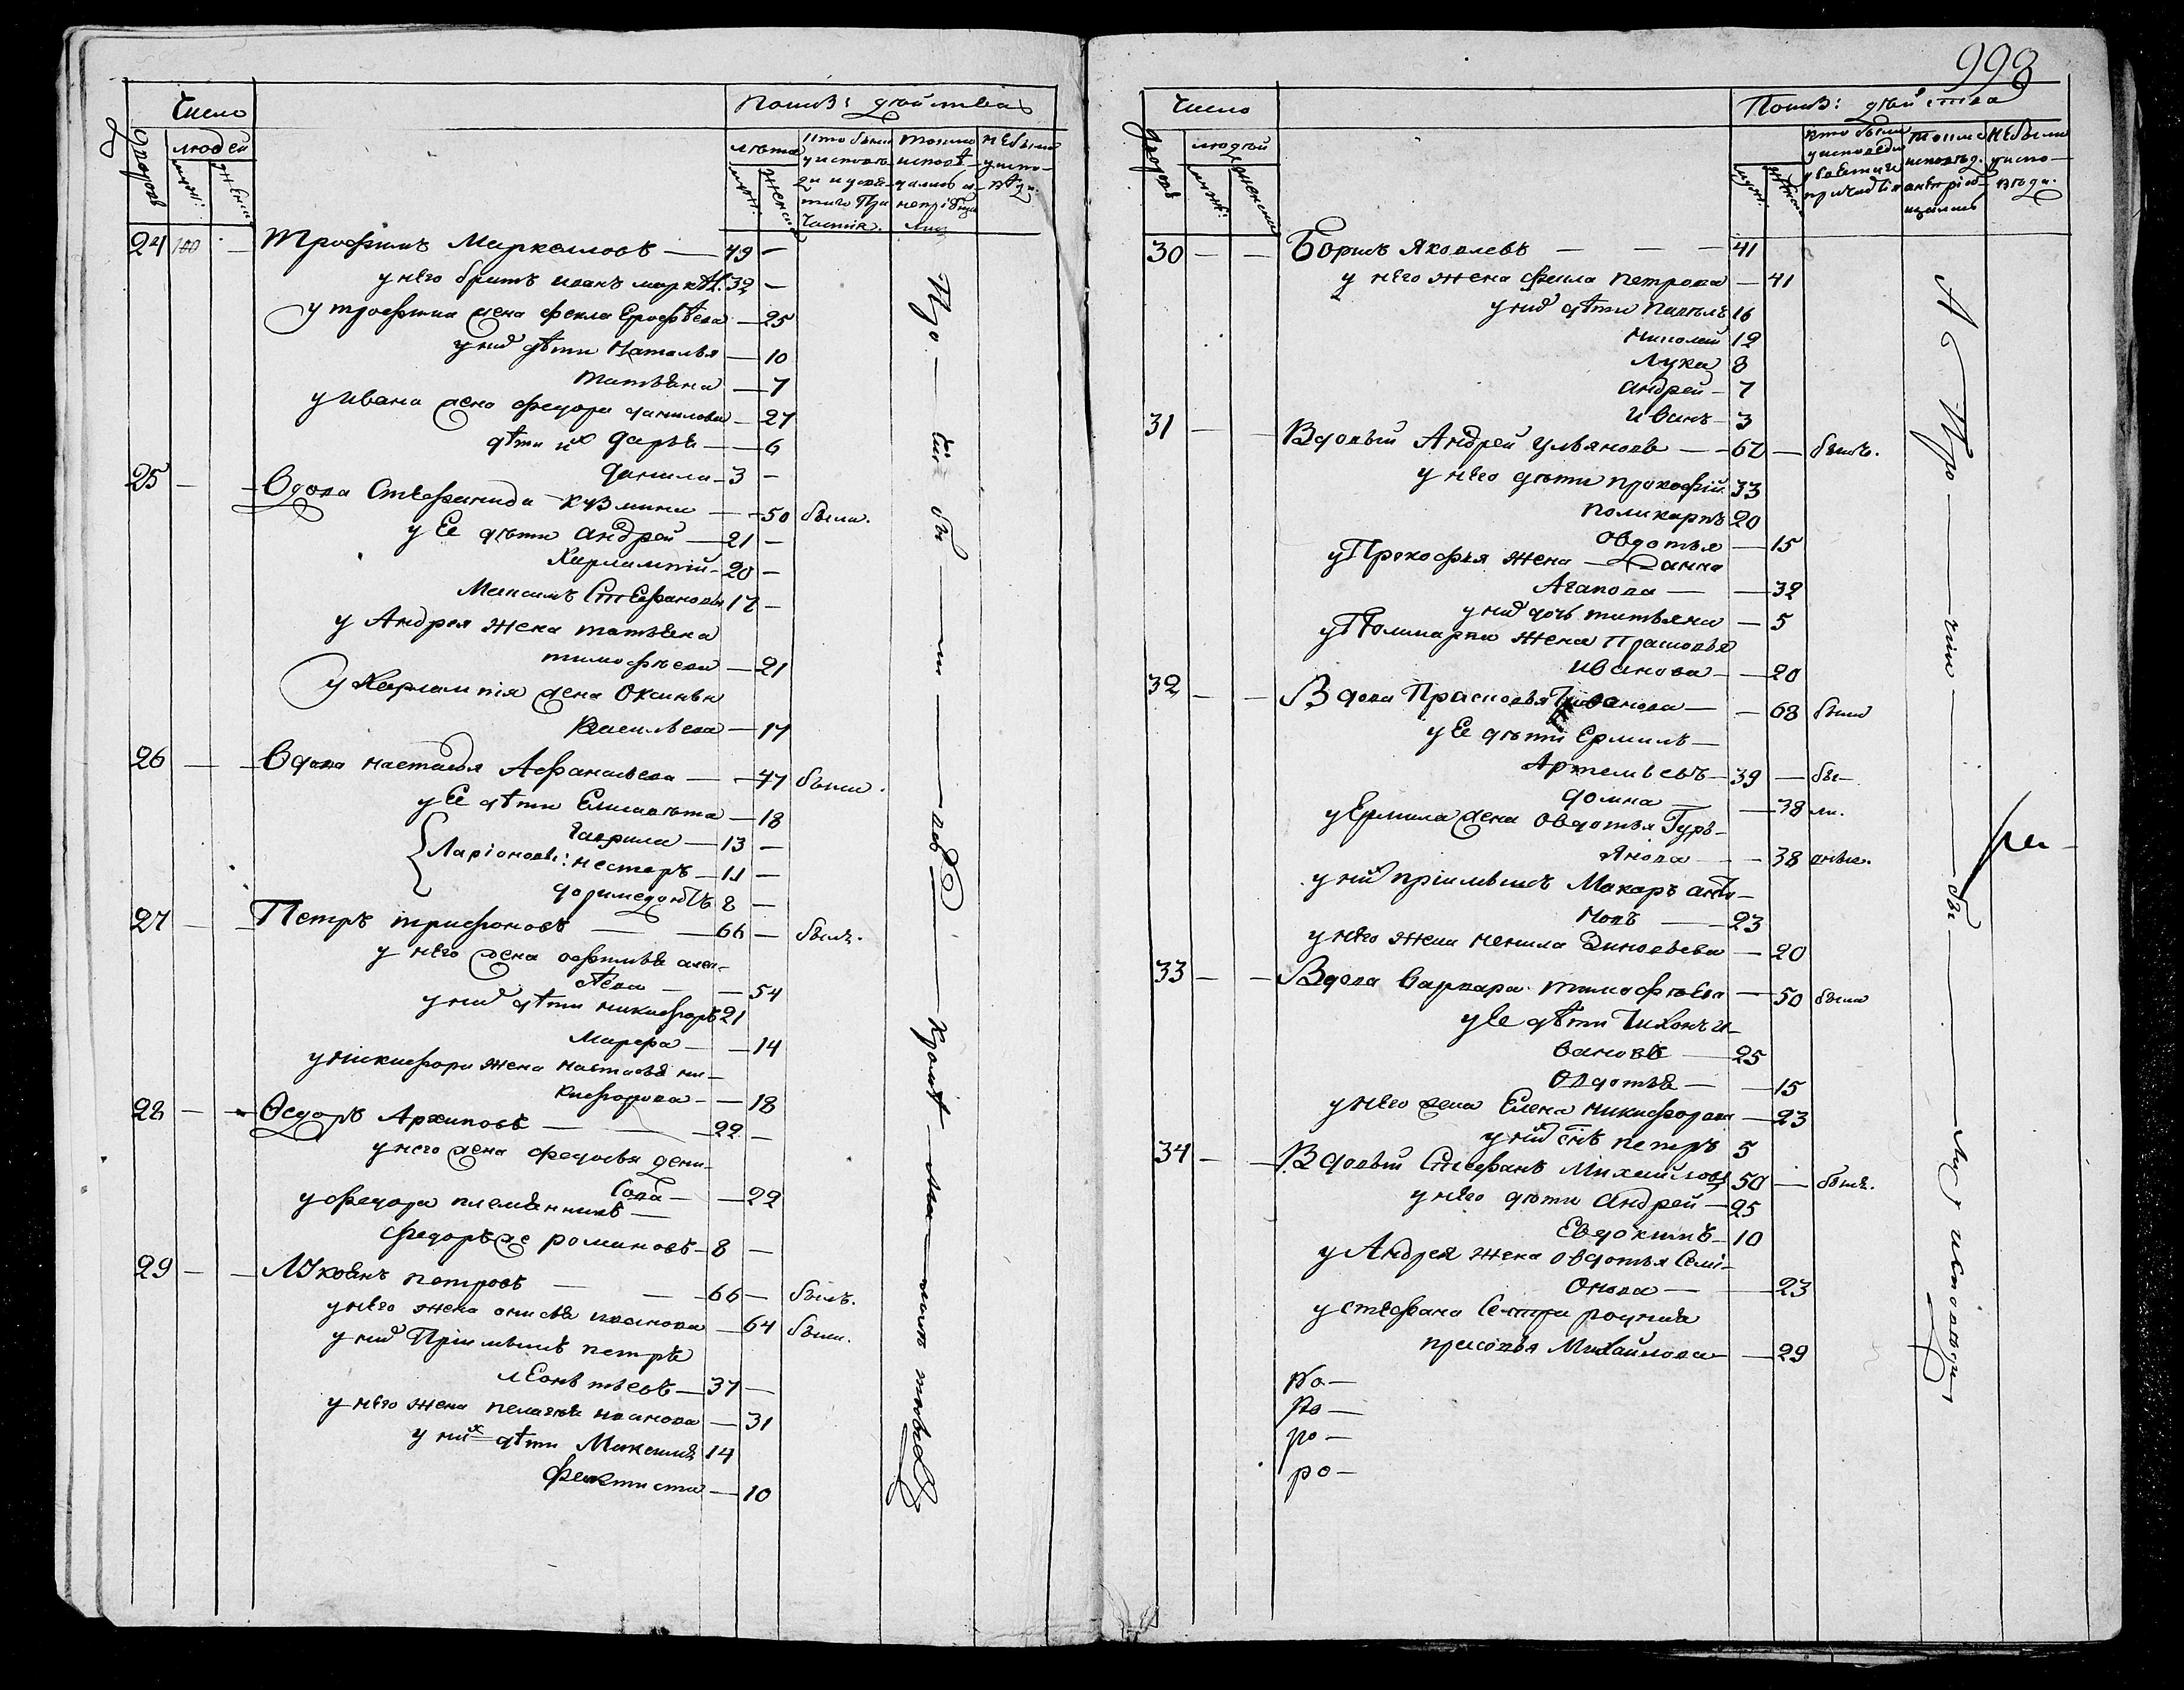 Число
Показ: действа
дворовъ
людей
муж:
женск
лета
муж.
женска
кто были
у исповѣ-
ди и свя-
таго При
частия.
токмо
исповѣ-
дались а
не пріобщи
лис
не были
у испо-
вѣди.
24 100 — Трофимъ Маркеловъ — 49 —
у него братъ иванъ маркел. 32 —
у трофима жена фекла Ерофѣева — 25
у них дѣти Наталья — 10
татьяна — 7
у Ивана жена федора данилова — 27
дѣти их Дарья — 6
данила — 3 —
25 — — Вдова Стефанида Кузмина — 50 была.
у Ее дѣти андрей — 21 —
Харлампій — 20 —
Максимъ Стефановы 17 —
у Андрея жена татьяна
тимофѣева — 21
у Харлампія жена Оксинья
Васильева — 17
26 — — Вдова настасья Афанасьева — 47 была.
у Ее дѣти Елисавета — 18
гаврила — 13 —
Ларіоновы: нестеръ — 11 —
доримедонтъ 8 —
27 — — Петръ трифоновъ — 66 — былъ.
у него жена офимья алек-
сѣева — 54
у них дѣти никифоръ 21
Марфа — 14
у никифора жена настасья ни-
кифорова — 18
28 — — Ѳедоръ Архиповъ — 22 —
у него жена федосья дени-
сова — 22
у федора племянникъ —
федоръ же романовъ — 8 —
29 — — Лукоянъ петровъ — 66 — былъ.
у него жена анисья иванова — 64 была.
у них Пріимышъ петръ
леонтьевъ — 37 —
у него жена пелагея иванова — 31
у них дѣти Максимъ 14
феоктиста — 10
Про — чіи — бы — ли — Кромѣ
993
Число
Показ: действа
дворовъ
людей
муж:
женска
муж.
кто были
у исповеди
и святаго
причастія
токмо
исповѣд.
а не пріоб-
щались
Не были
у испо-
вѣди.
30 — — Борисъ Яковлевъ — — — 41
у него жена фекла петрова — 41
у них дѣти павелъ 16
николай 12
Лука 8
андрей — 7
Иванъ — 3
31 — — Вдовый Андрей Ульяновъ — 62 — былъ.
у него дѣти прокофій 33
поликарпъ 20
овдотья — 15
у Прокофья жена — анна
Агапова — 32
у них дочь татьяна — 5
у Поликарпа жена Прасковья
иванова — 20
32 — — Вдова Прасковья Иванова — 68 была
у Ее дѣти Ермилъ —
Артемьевъ — 39 — бы-
домна — 38 ли.
у Ермила жена овдотья Гурь-
янова — 38
у них пріимышъ Макаръ анто-
новъ — 23
у него жена ненила Зиновьева — 20
33 — — Вдова варвара тимофѣева — 50 была
у Ее дѣти Тихонъ И-
вановъ — 25
Овдотья — 15
у него жена Елена никифорова — 23
у них сынъ петръ 5
34 — — Вдовый Стефанъ Михайловъ 50 — былъ.
у него дѣти андрей — 25
Евдокимъ — 10
у Андрея жена овдотья Семі-
онова — 23
у стефана Сестра родная
прасковья Михайлова — 29
А Про — чіи — бы — ли у исповеди
ро —
ро —
ро —
ро —